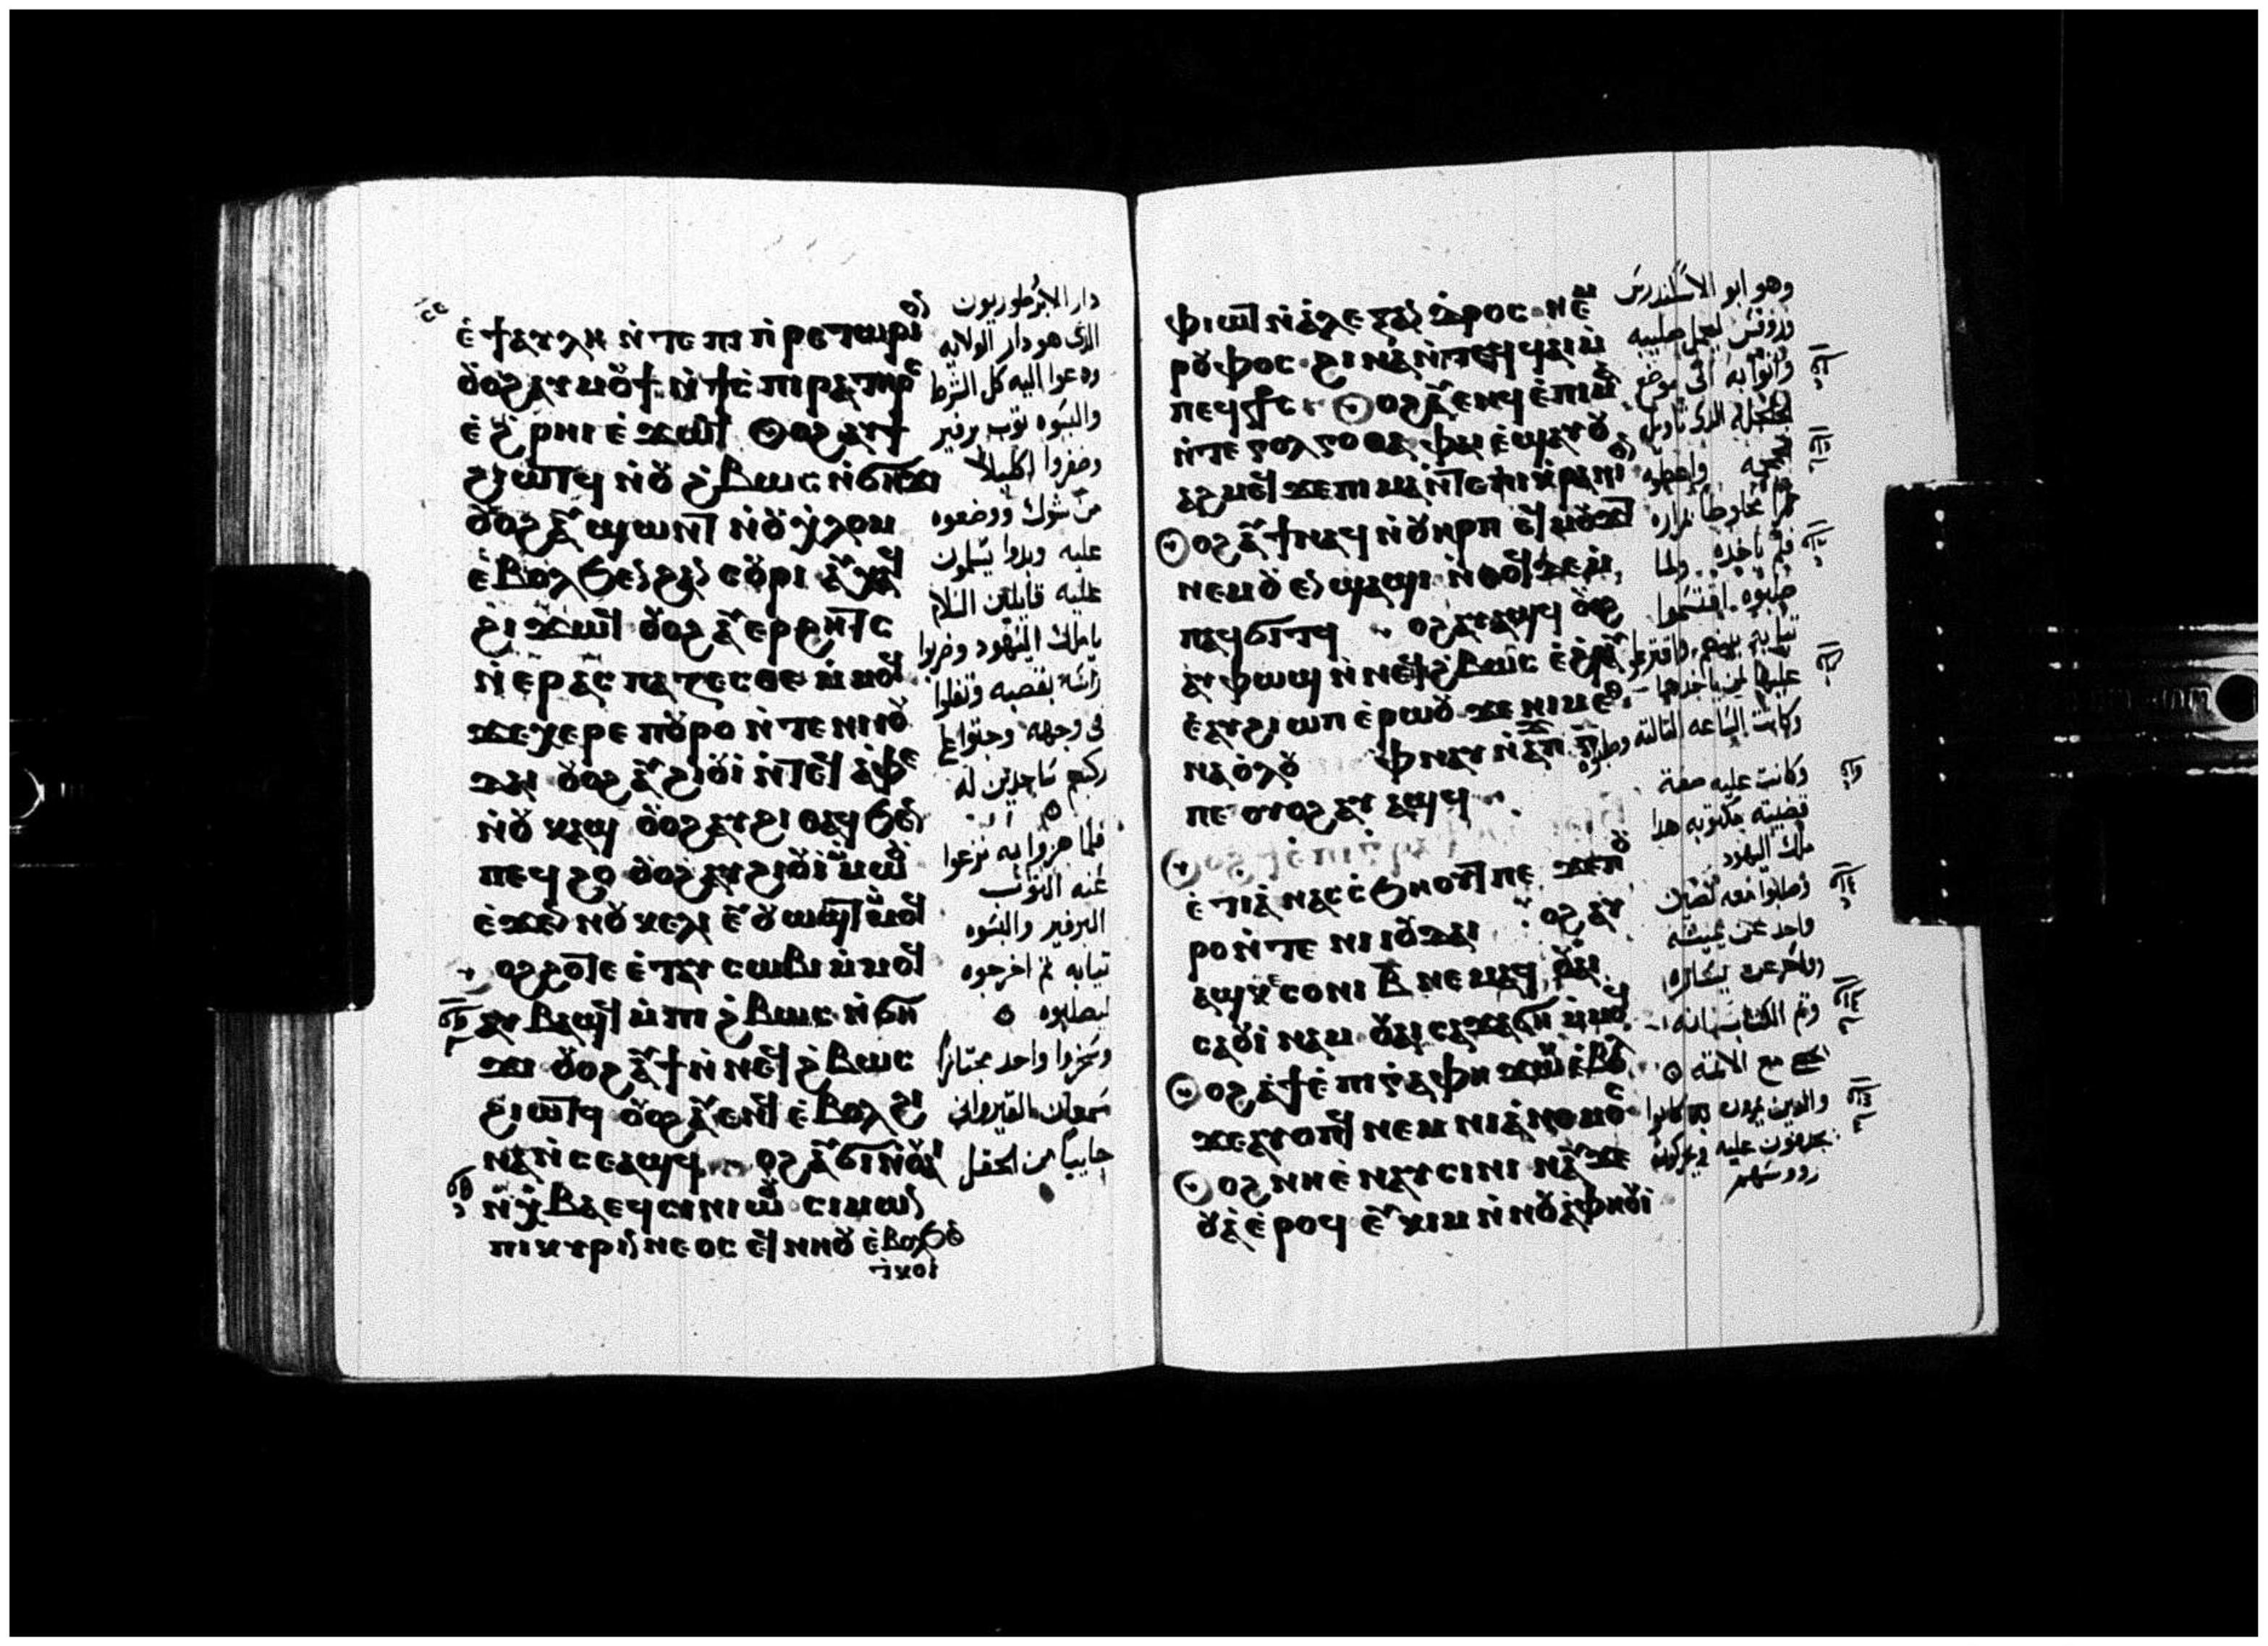 ⲉ̀ϯⲁⲩⲗⲏ ⲛ̀ⲧⲉ ⲡⲓ ⲡ̀ⲣⲉⲧⲱⲣⲓⲟⲛ
ⲟⲩⲟϩ ⲁⲩⲙⲟⲩϯ ⲛ̀ϯⲥ̀ⲡⲓⲣⲁ ⲧⲏⲣⲥ
ⲉ̀ϩ̀ⲣⲏⲓ ⲉ̀ϫⲱϥ ⲟϩ ⲁⲩϯ
ϩⲓⲱⲧϥ ⲛ̀ⲟⲩ ϩ̀ⲃⲱⲥ ⲛ̀ϭⲏϫⲓ
ⲟⲩⲟϩ ⲁⲩϣⲱⲛⲧ ⲛ̀ⲟⲩⲭ̀ⲗⲟⲙ
ⲉ̀ⲃⲟⲗ ϧⲉⲛ ϩⲁⲛ ⲥⲟⲩⲣⲓ ⲁⲩⲭⲁϥ
ϩⲓϫⲱϥ ⲟⲩⲟϩ ⲁⲩⲉⲣϩⲏⲧⲥ
ⲛ̀ⲉⲣⲁⲥⲡⲁⲧⲉⲥⲑⲉ ⲙ̀ⲙⲟϥ
ϫⲉ ⲭⲉⲣⲉ ⲡⲟⲩⲣⲟ ⲛ̀ⲧⲉ ⲛⲓⲓⲟⲩ
ϫⲁⲓ ⲟⲩⲟϩ ⲁⲩϩⲓⲟⲩⲓ ⲛ̀ⲧⲉϥ ⲁ̀ⲫⲉ
ⲛ̀ⲟⲩ ⲕⲁϣ ⲟⲩⲟϩ ⲁⲩϩⲓ ⲑⲁϥ ϧⲉⲛ
ⲡⲉϥ ϩⲟ ⲟⲩⲟϩ ⲁⲩϩⲓⲟⲩⲓ ⲙ̀ⲙⲱⲟⲩ
ⲉ̀ϫⲉⲛ ⲛⲟⲩ ⲕⲉⲗⲓ ⲉⲩⲟⲩⲱϣⲧ ⲙ̀ⲙⲟϥ
ⲟϩ ϩⲟⲧⲉ ⲉ̀ⲧⲁⲩ ⲥⲱⲃⲓ ⲙ̀ⲙⲟϥ
ⲁⲩ ⲃⲁϣϥ ⲙ̀ⲡⲓ ϩ̀ⲃⲱⲥ ⲛ̀ϭⲏ
ϫⲓ ⲟⲩⲟϩ ⲁⲩϯ ⲛ̀ⲛⲉϥ ϩ̀ⲃⲱⲥ
ϩⲓⲱⲧϥ ⲟⲩⲟϩ ⲁⲩⲉⲛϥ ⲉ̀ⲃⲟⲗ ϩⲓ
ⲛⲁ ⲛ̀ⲥⲉⲁϣϥ ⲟϩ ⲁⲩϭⲓ ⲛ̀ⲟⲩⲁⲓ
ⲛ̀ⲭ̀ⲃⲁ ⲉϥⲥⲓⲛⲓⲱⲟⲩ ⲥⲓⲙⲱⲛ
ⲡⲓⲕⲩⲣⲓⲛⲛⲉⲟⲥ ⲉϥⲛⲏⲟⲩ ⲉ̀ⲃⲟⲗϧⲉⲛ
ⲧⲕⲟⲓ
دار الابرطوريون
الذى هو دار الولايه
ودعوا اليه كل الشرط
والبسوه ثوب برفير
وضفروا اكليلا
من شوك ووضعوه
عليه وبدوا يسلمون
عليه قايلين السلام
يا ملك اليهود وضربوا
راسه بقصبه وتفلوا
فى وجهه وجثوا على
ركبهم ساجدين له
فلما هزوا به نزعوا
عنه الثوب
البرفير والبسوه
ثيابه ثم اخرجوه
ليصلبوه
وسخروا واحد مجتازا
سمعان القيروانى
جاييا من الحقل
ⲫⲓⲱⲧ ⲛ̀ⲁ̀ⲗⲉⲝⲁⲛⲇⲣⲟⲥ ⲛⲉⲙ
ⲣⲟⲩⲫⲟⲥ ϩⲓⲛⲁ ⲛ̀ⲧⲉϥϥⲁⲓ ⲙ̀
ⲡⲉϥⲥϯⲥ ⲟϩ ⲁⲩⲉⲛϥ ⲉ̀ⲡⲓⲙⲁ
ⲛ̀ⲧⲉ ⲅⲟⲗⲅⲟⲑⲁ ⲫⲏ ⲉ̀ϣⲁⲩⲟⲩ
ⲁϩⲙⲉϥ ϫⲉ ⲡⲓ ⲙⲁ ⲛ̀ⲧⲉ ⲡⲓⲕ̀ⲣⲁⲛⲓⲟⲛ
ⲟϩ ⲁⲩϯ ⲛⲁϥ ⲛ̀ⲟⲩⲏⲣⲡ ⲉϥⲙⲟⲩϫⲧ
ⲛⲉⲙ ⲟⲩⲉⲛϣⲁϣⲓ ⲛ̀ⲑⲟϥ ⲇⲉ ⲙ̀
ⲡⲉϥϭⲓⲧϥ ⲟϩ ⲁⲩⲁϣϥ ⲟⲩⲟϩ
ⲁⲩⲫⲱϣ ⲛ̀ⲛⲉϥϩ̀ⲃⲱⲥ ⲉ̀ϩⲣⲁⲩ
ⲉⲁⲩϩⲓⲱⲡ ⲉ̀ⲣⲱⲟⲩ ϫⲉ ⲛⲓⲙ ⲉⲑ
ⲛⲁⲟ̀ⲗⲟⲩ ⲫⲛⲁⲩ ⲛ̀ⲁϫⲡ ⲅ̅
ⲡⲉ ⲟⲩⲟϩ ⲁⲩ ⲁϣϥ
ⲉ̀ⲧⲓⲁ̀ ⲛⲁⲥⲥ̀ϧⲏⲟⲩⲧ ⲡⲉ ϫⲉ ⲡⲟⲩ
ⲣⲟ ⲛ̀ⲧⲉ ⲛⲓⲓⲟⲩⲇⲁⲓ ⲟϩ ⲁⲩ
ⲁϣ ⲕⲉ ⲥⲟⲛⲓ ⲃ̅ ⲛⲉⲙⲁϥ ⲟⲩⲁⲓ
ⲥⲁⲟⲩⲓⲛⲁⲙ ⲟⲩⲁⲓ ⲥⲁϫⲁϭⲏ ⲙ̀ⲙⲟϥ
ⲟϩ ⲁ̀ϯⲉ̀ⲡⲓⲅⲣⲁⲫⲏ ϫⲱⲕ ⲉ̀ⲃⲟⲗ
ϫⲉ ⲁⲩⲟⲡϥ ⲛⲉⲙ ⲛⲓⲁ̀ⲛⲟⲙⲟⲥ
ⲟϩ ⲛⲏ ⲉ̀ⲛⲁⲩⲥⲓⲛⲓ ⲛⲁⲩϫⲉ
ⲟⲩⲁ̀ ⲉ̀ⲣⲟϥ ⲉⲩⲕⲓⲙ ⲛ̀ⲛⲟⲩⲁ̀ⲫⲏⲟⲩⲓ
وهو ابو الاسكندرس
وروفس ليحمل صليبه
واتوا به الى موضع
الجلجلة الذى تاويل
واعطوه
خمرا مخلوطا مراره
فلم ياخذه ولما
صلبوه اقتسموا
ثيابه بينهم واقترعوا
عليها لمن ياخذها
وكانت الساعه الثالثه وصلبوه
وكانت عليه صفة
قضيته مكتوبه هذا
ملك اليهود
وصلبوا معه لصان
واحد عن يمينه
واخر عن يساره
وتم الكتاب انه
مع الاثمه
يجدفون عليه ويحركون
رووسهم